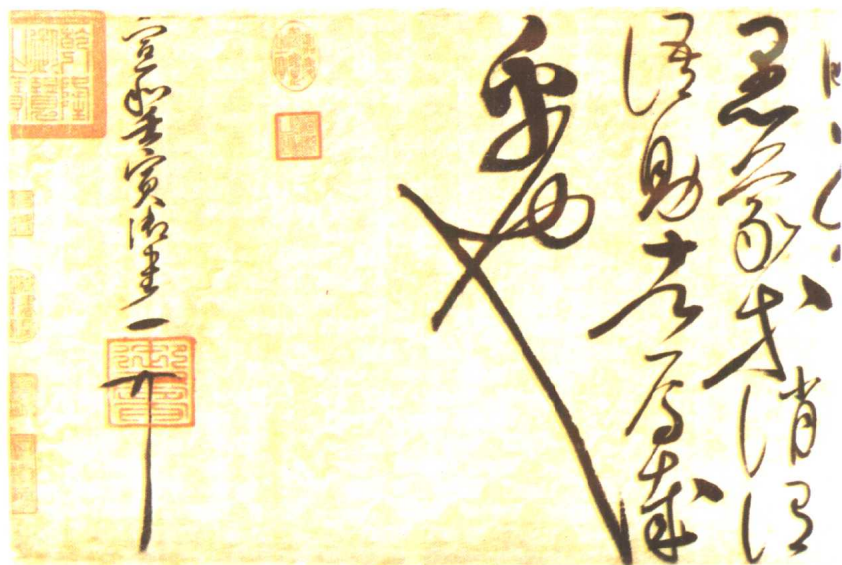 愚蒙等誚謂
語助者焉哉
乎也
宣和壬寅御書